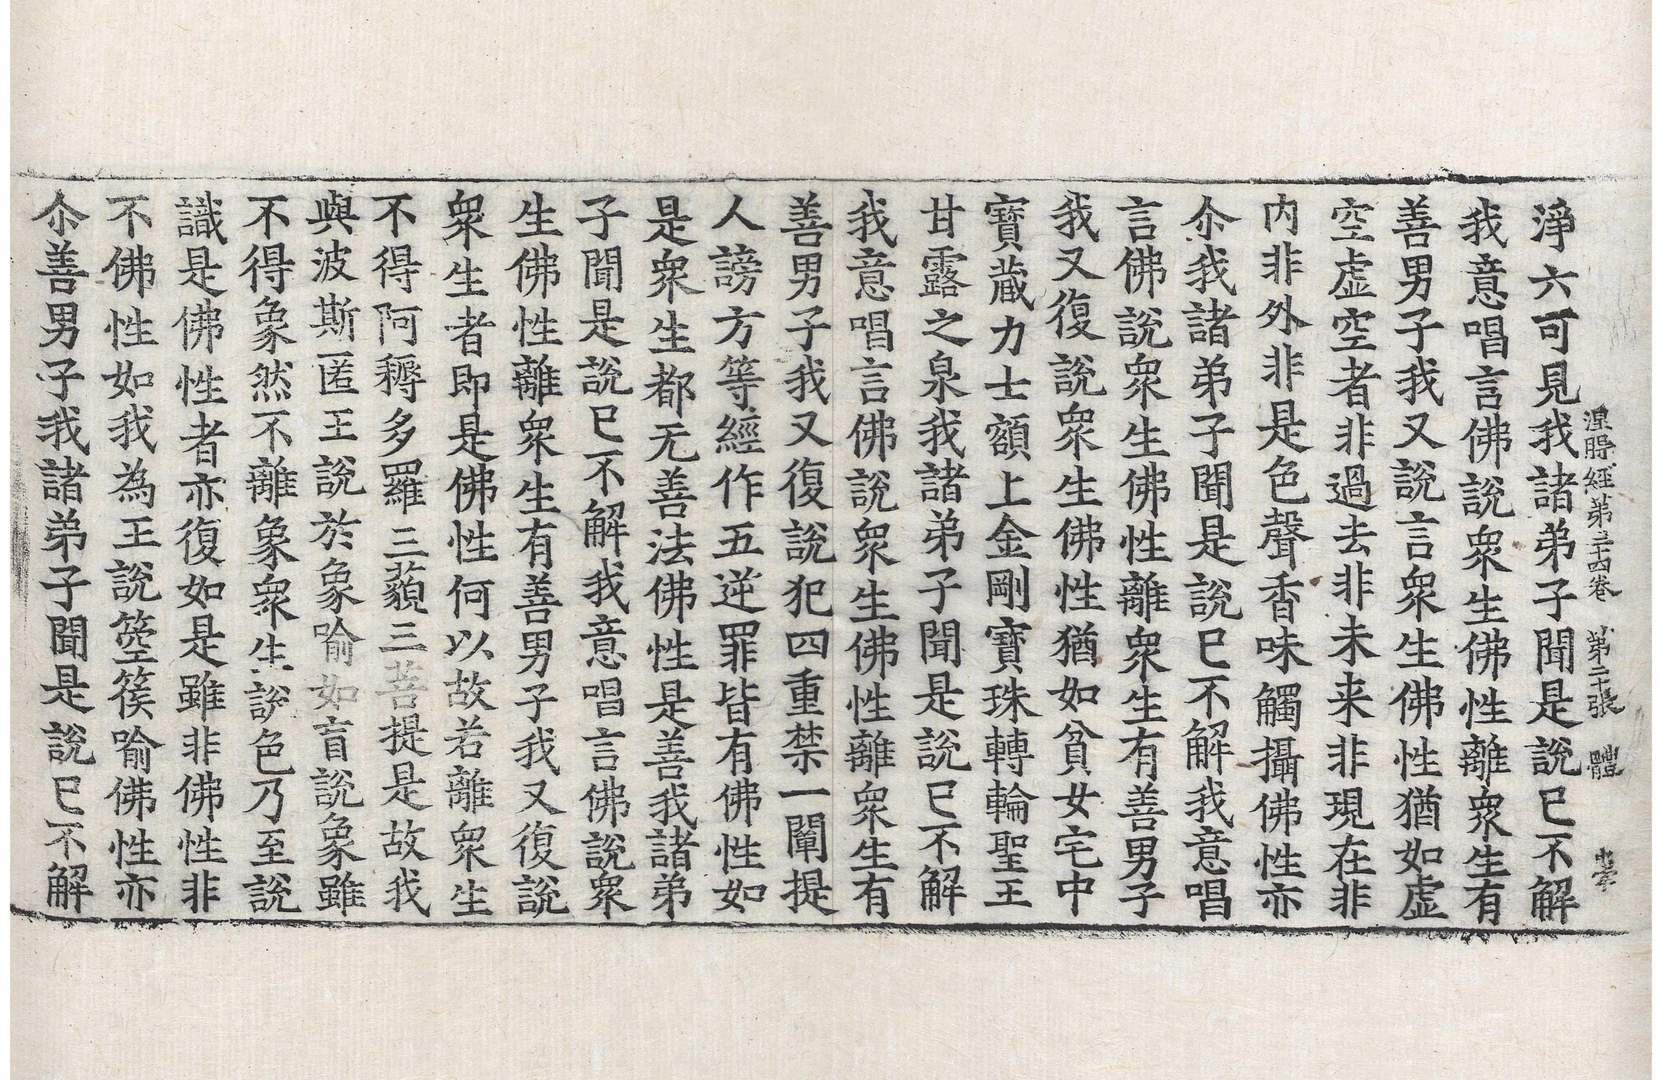 涅槃経第三十四卷 第二十張 體
淨六可見我諸弟子聞是說已不解
我意唱言佛說衆生佛性離衆生有
善男子我又說言衆生佛性猶如虛
空虛空者非過去非未来非現在非
内非外非是色聲香味觸攝佛性亦
尒我諸弟子聞是說已不解我意唱
言佛說衆生佛性離衆生有善男子
我又復說衆生佛性猶如貧女宅中
寶蔵力士額上金剛寶珠轉輪聖王
甘露之泉我諸弟子聞是說已不解
我意唱言佛說衆生佛性離衆生有
善男子我又復說犯四重禁一闡提
人謗方等經作五逆罪皆有佛性如
是衆生都无善法佛性是善我諸弟
子聞是說已不解我意唱言佛說衆
生佛性離衆生有善男子我又復說
衆生者即是佛性何以故若離衆生
不得阿耨多羅三藐三菩提是故我
與波斯匿王說於象喻如盲說象雖
不得象然不離象衆生說色乃至說
識是佛性者亦復如是雖非佛性非
不佛性如我為王說箜篌喻佛性亦
尒善男子我諸弟子聞是說已不解